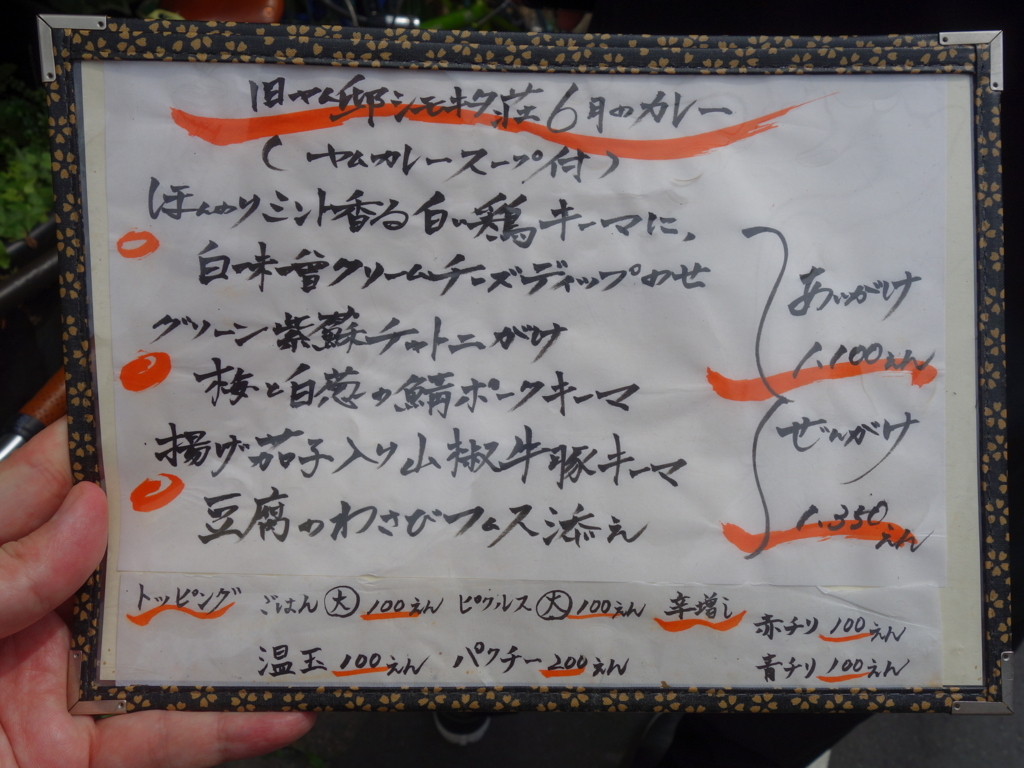 旧ヤム邸シモキタ荘6月のカレー
(ヤムカレースープ付)
ほんのりミント香る白い鶏キーマに、
白味噌クリームチーズディップのせ
グリーン紫蘇チャトニがけ
梅と白葱の鯖ポークキーマ
揚げ茄子入り山椒牛豚キーマ
豆腐のわさびフムス添え
あいがけ
1,100えん
ぜんがけ
1,350えん
トッピング ごはん大100えん ピクルス大100えん 辛増し 赤チリ100えん
温玉100えん パクチー200えん 青チリ100えん